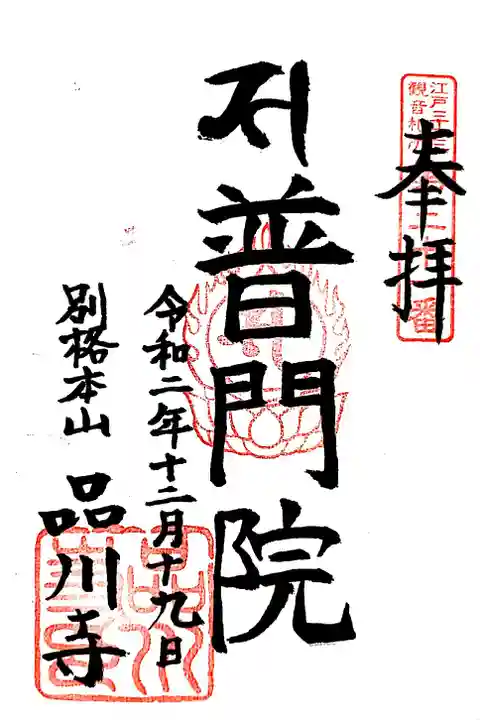 奉拝
江戸三十三
観音札所
番
普門院
令和二年十二月十九日
別格本山 品川寺